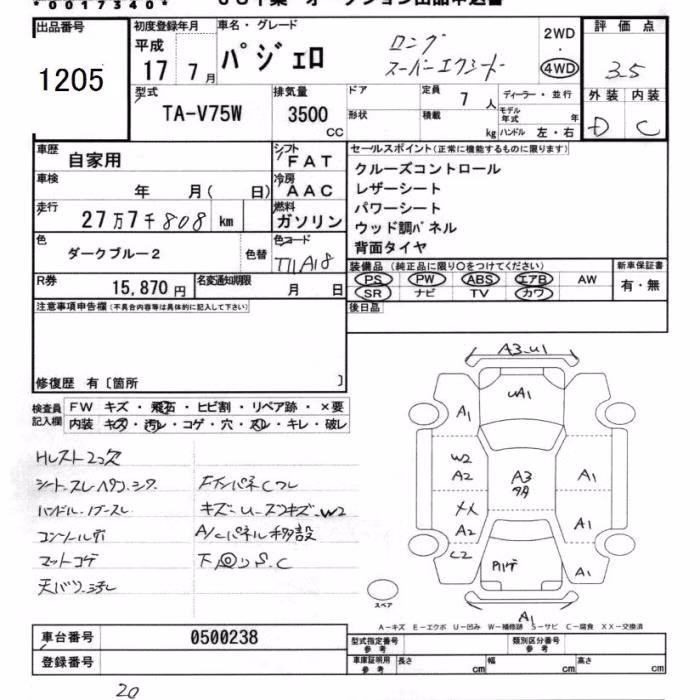 *0017340*
出品番号
1205
初度登録年月
平成
17 7月
車名・グレード
パジェロ
ロング
スーパーエクシード
2WD
・
4WD
評価点
3.5
外装 内装
D C
型式
TA-V75W
排気量
3500
CC
ドア
定員 7人
ディーラー・並行
形状
積載 kg
モデル年式 年
ハンドル 左・右
車歴
自家用
シフト
FAT
車検
年 月( 日)
冷房
AAC
走行
27万7千808 km
燃料
ガソリン
色
ダークブルー2
色替
色コード
T11A18
R券
15,870円
名変通知期限
月 日
セールスポイント(正常に機能するものに限ります)
クルーズコントロール
レザーシート
パワーシート
ウッド調パネル
背面タイヤ
装備品(純正品に限り○をつけてください)
PS PW ABS エアB AW
SR ナビ TV カワ
新車保証書
有・無
後日品
注意事項申告欄(不具合内容等は具体的に記入して下さい)
修復歴 有〔箇所 〕
検査員
記入欄
FW キズ・飛石・ヒビ割・リペア跡・×要
内装 キズ・汚レ・コゲ・穴・スレ・キレ・破レ
Hレスト2コ欠
シート・スレ・ヘタリ・シワ
ハンドル・ノブ・スレ
マットコゲ
天バリ・汚レ
A/Cパネル移設
下回りS.C
A3.U1
UA1
A1
W2
A2
A3
A1
XX
A2
A1
C2
A1
A1
スペア
A-キズ E-エクボ U-凹み W-補修跡 S-サビ C-腐食 XX-交換済
車台番号
0500238
登録番号
型式指定番号
参考
類別区分番号
参考
車庫証明用
参考
長さ cm
幅 cm
高さ cm
20